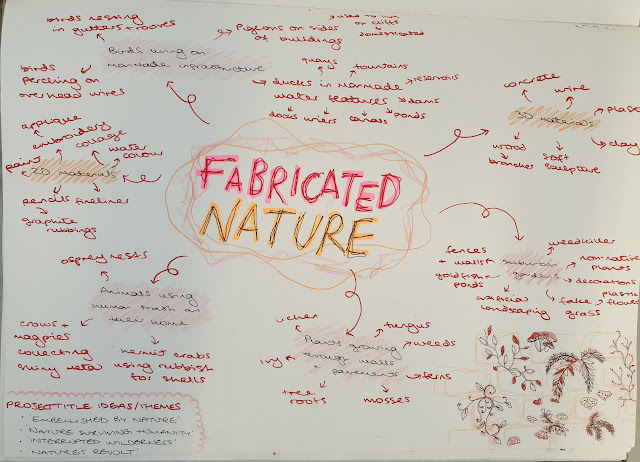 birds nesting
in gutters + rooves
Pigeons on sides
of buildings
used to live
on cliffs
domesticated
Birds living on
manmade infrastructure
birds
perching on
overhead wires
quays
fountains
ducks in manmade
water features
reservoirs
dams
ponds
canals
wiers
docks
concrete
wire
plaster
3D materials
clay
wood
branches
soft
sculpture
applique
embroidery
collage
water
colour
paint
2D materials
pencils
fineliner
graphite
rubbings
FABRICATED
NATURE
osprey nests
Animals using
human trash as
their home
crows +
magpies
collecting
shiny metal
hermit crabs
using rubbish
for shells
lichen
fungus
Plants growing
through walls
+ pavements
weeds
ferns
ivy
tree
roots
mosses
weedkiller
fences
+ walls
suburban
gardens
non-native
plants
goldfish +
ponds
decorations
plastic
flowers
fake
grass
artificial
landscaping
PROJECT TITLE IDEAS/THEMES
• 'EMBELLISHED BY NATURE'
• 'NATURE SURVIVING HUMANITY'
• 'INTERRUPTED WILDERNESS'
• 'NATURES REVOLT'